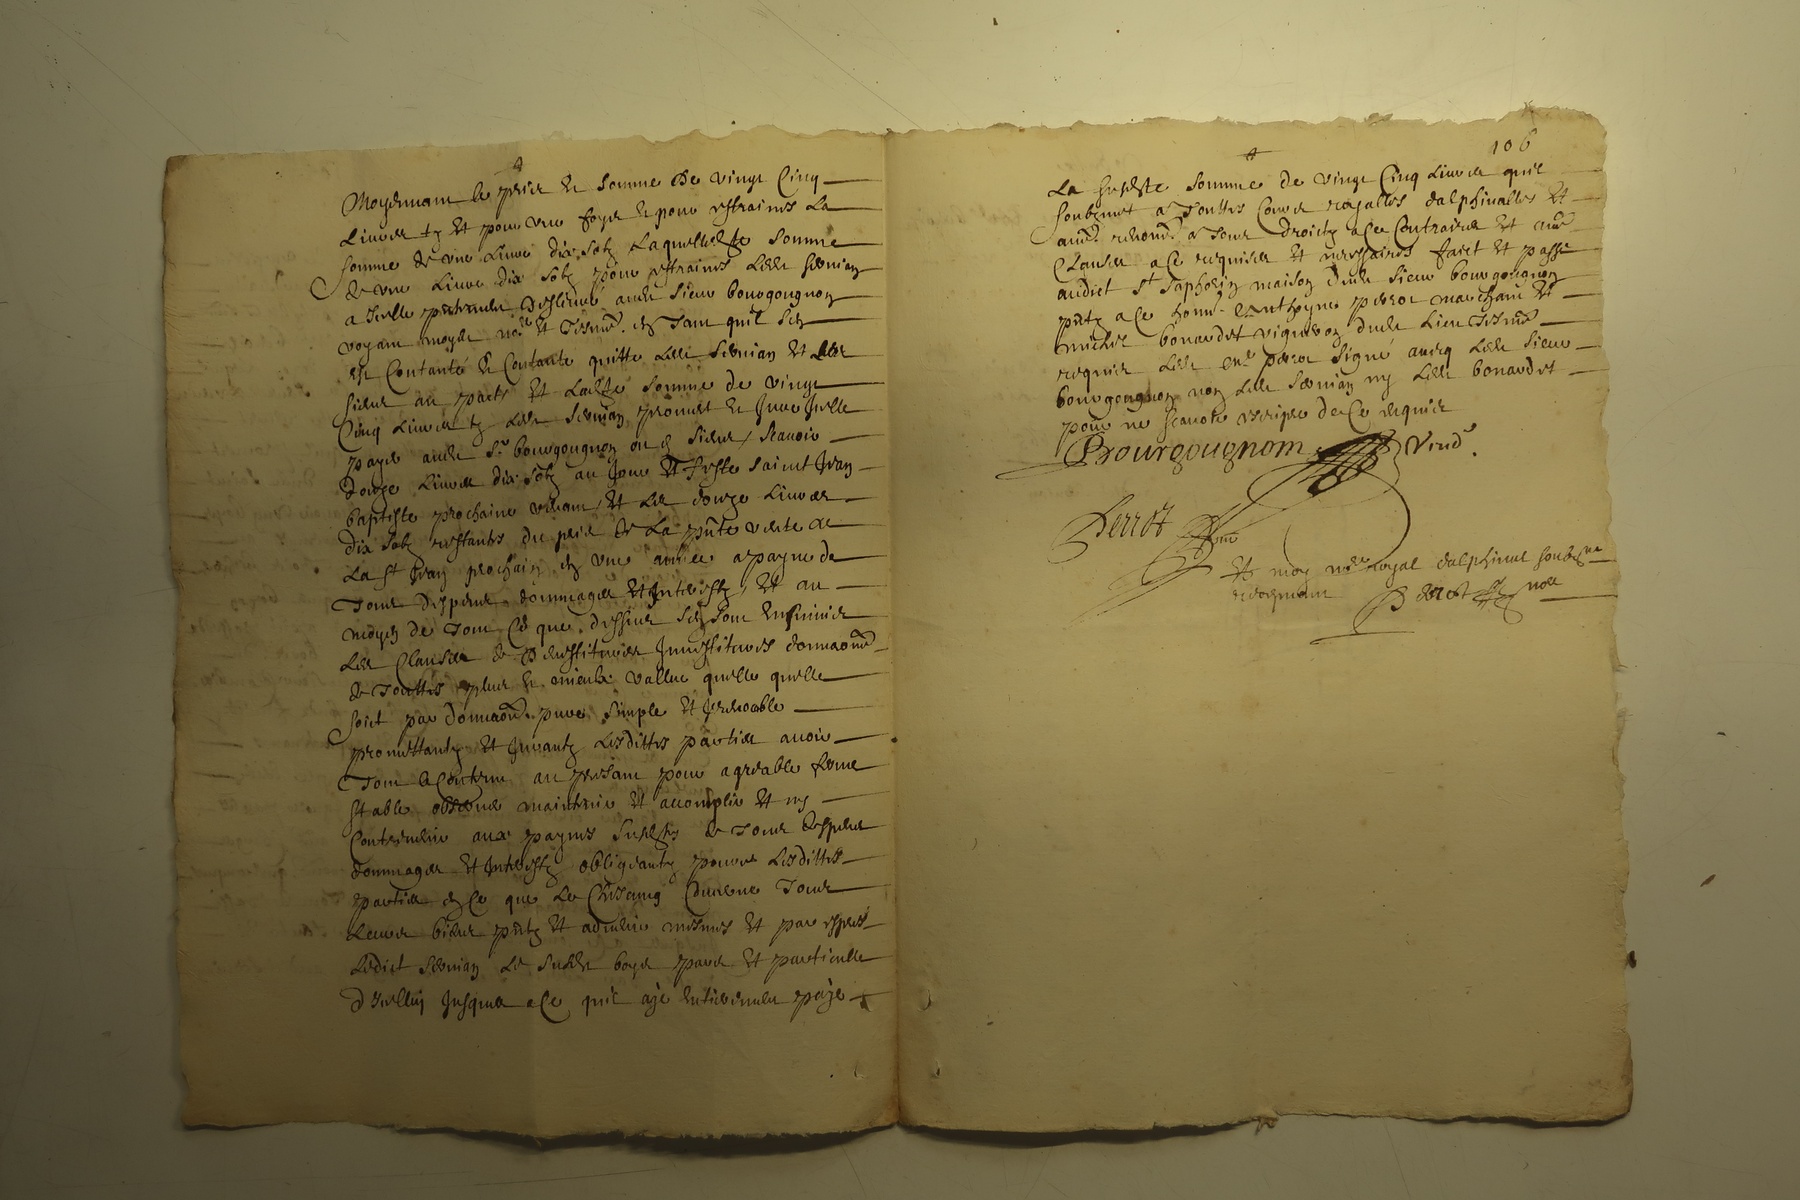 Moyennant le prix et somme de vingt Cinq
Livres tz et pour une foys et pour estraines La
somme de une Livre dix solz Laquelle somme
de une Livre dix solz pour estraines Ledt Servian
a Icelle presentement deslivré audt sieur bourgougnon
voyant moydt nore et tesmz. en tant quil sen
est Contanté et Contante quitte Ledt Servian et Ledt
sieur au pacte et Ladte somme de vingt
Cinq Livres tz Ledt Servian promet et Jure Icelle
payer audt sr bourgougnon ou es siens, scavoir
douze Livres dix solz au Jour et feste saint Jean
baptiste prochaine venant, et les douze Livres
dix solz restantz du prix de La pnte vente de
La st Jean prochain en une année a payne de
Tous despens dommages et Interestz, et au
moyen de tout Ce que dessus sen sont Ensuivies
Les Clauses de devestitures Investitures donnaons
de Touttes plus et mieulx vallue quelle quelle
soict par donnaon pure simple et Irrevocable
promettantz et Jurantz Lesdittes parties avoir
Tout le Contenu au present pour agreable ferme
stable observer maintenir et accomplir et ny
Contrevenir aux paynes susdes de Tous despens
dommages et Interestz obligeantz pource Lesdittes
parties en Ce que Le Chescung Concerne Tous
Leurs biens pntz et advenir mesmes et par expres
Ledict Servian Le susdt boys pure et particulle
d Icelluy Jusques a Ce quil aye entierement payé
106
La susdte somme de vingt Cinq Livres quil
soubzmet a Touttes Cours royalles dalphinalles et
aues. renonce a Tous droictz a Ce Contraires et aues
Clauses a Ce requises et necessaires faict et passé
audict st Saphorin maison dudt sieur bourgougnon
pntz a Ce honn. Anthoyne perrot marchant et
michel bonardet vigneron dudt Lieu tesmz
requis Ledt perrot signé avecq Ledt sieur
bourgougnon non Ledt Servian ny Ledt bonardet
pour ne scavoir escripre de Ce requis
Bourgougnom Vend.
Perrot
Et moy nore royal dalphinal soubzne
recepvant Perrot nore